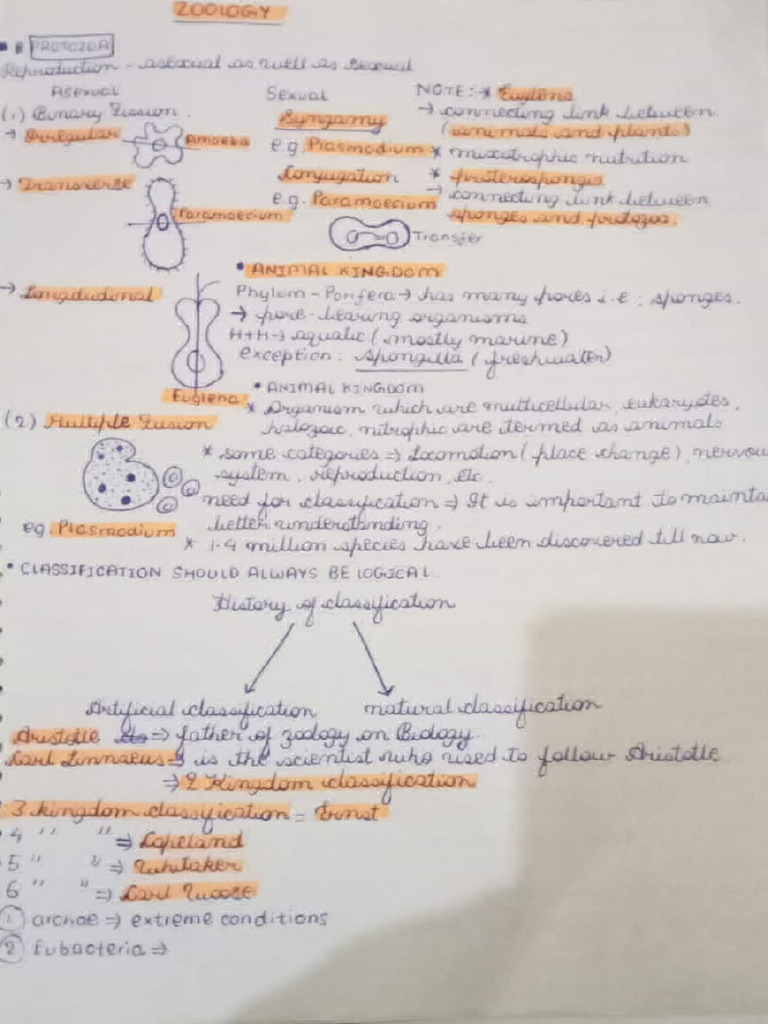 ZOOLOGY
PROTOZOA
Reproduction - asexual as well as sexual
Asexual
(1) Binary Fission
→ Irregular
Amoeba
→ Transverse
Paramoecium
→ Longitudinal
Euglena
(2) Multiple Fussion
eg. Plasmodium
Sexual
Syngamy
e.g. Plasmodium
Conjugation
e.g. Paramoecium
Transfer
NOTE: * Euglena
→ connecting link between
(animals and plants)
* mixotrophic nutrition
* proterospongia
→ connecting link between
sponges and protozoa.
• ANIMAL KINGDOM
Phylum - Porifera → has many pores i.e : sponges.
→ pore-bearing organisms
H+H → aquatic (mostly marine)
exception : spongilla (freshwater)
• ANIMAL KINGDOM
* Organism which are multicellular, eukaryotes,
holozoic, nitrophic are termed as animals
* some categories ⇒ Locomotion (place change), nervous
system, reproduction, etc.
need for classification ⇒ It is important to
better understanding.
* 1.4 million species have been discovered till now.
• CLASSIFICATION SHOULD ALWAYS BE LOGICAL.
History of classification
Artificial classification natural classification
Aristotle ⇒ father of zoology on Biology.
Carl Linnaeus → is the scientist who used to follow Aristotle
→ 2 Kingdom classification
3 kingdom classification = Ernst
4 " " ⇒ Copeland
5 " " ⇒ Whitaker
6 " " ⇒ Carl Woose
① archae ⇒ extreme conditions
② Eubacteria ⇒